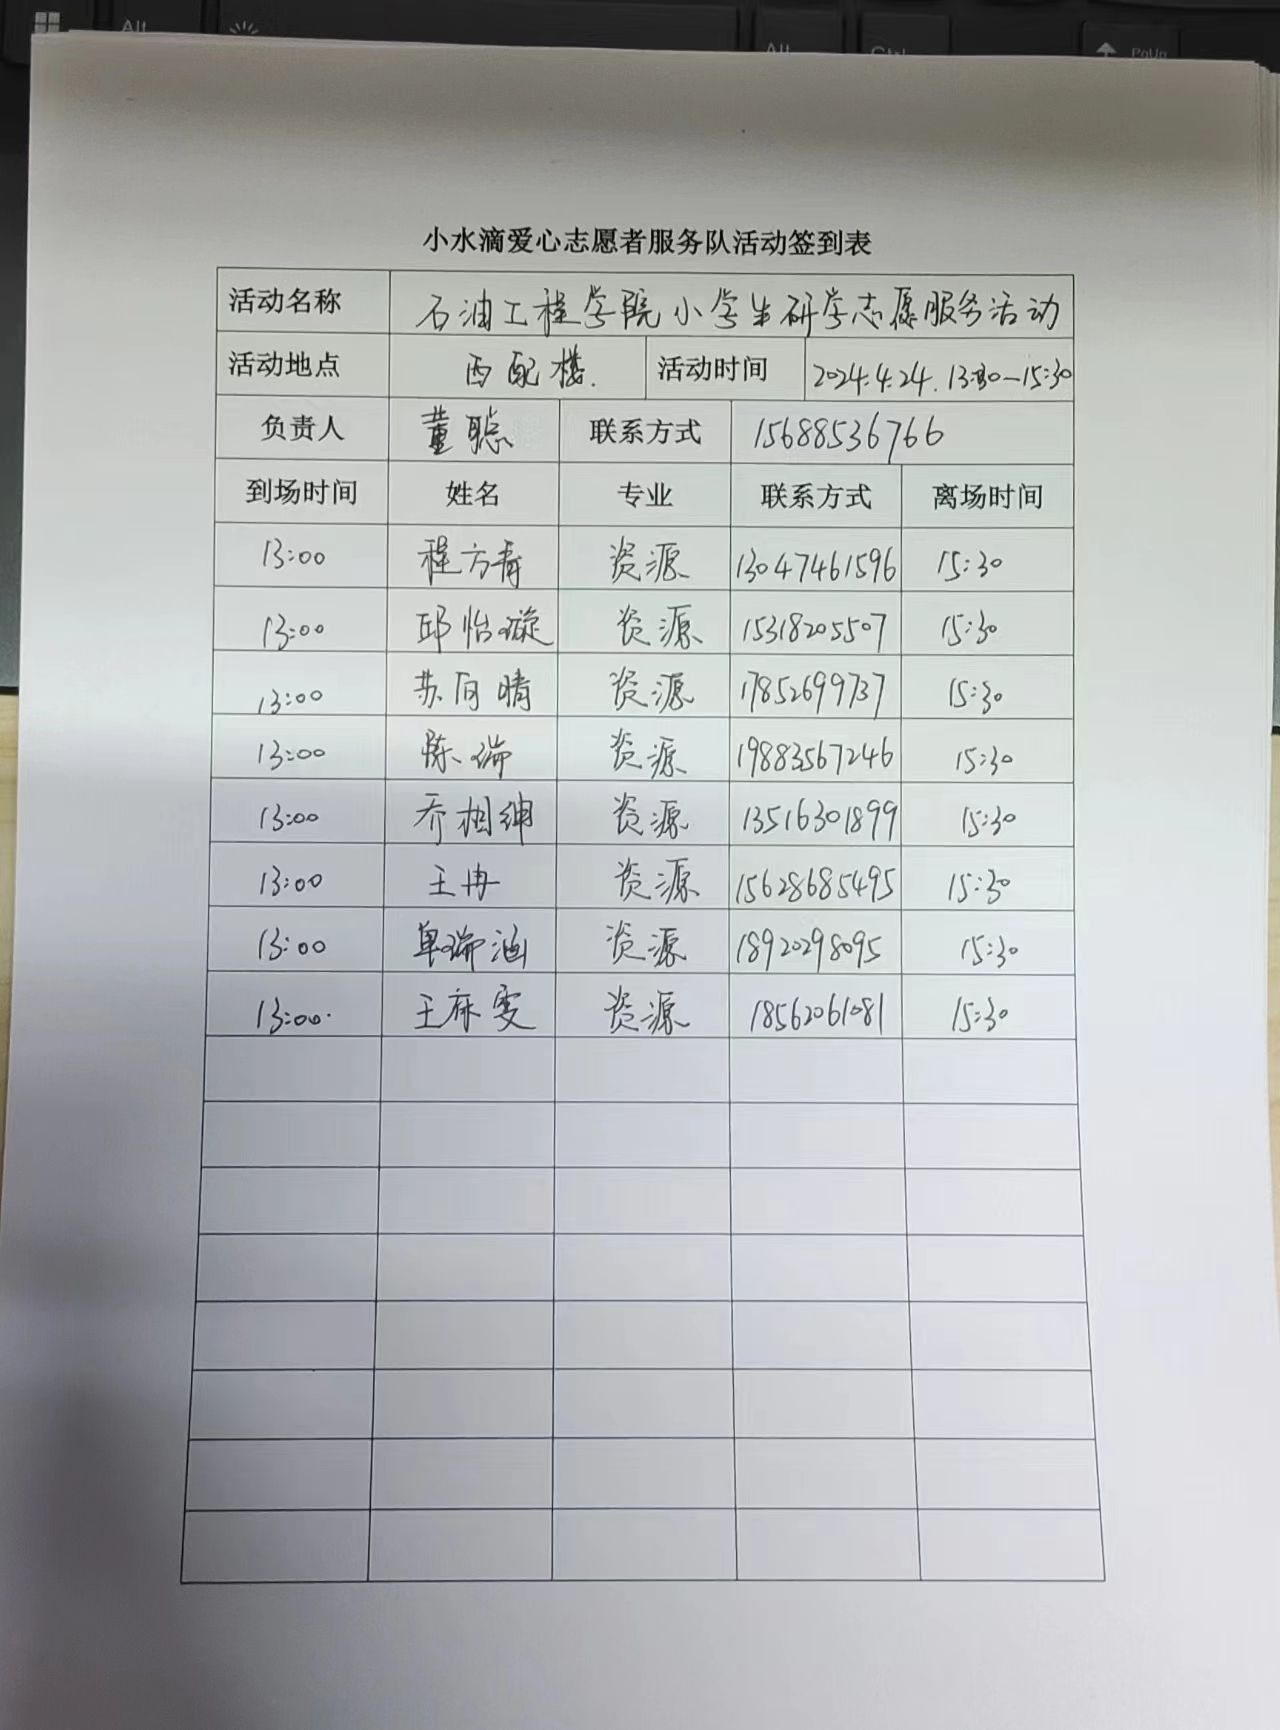 Alt
Alt
Ctrl
PgUp
小水滴爱心志愿者服务队活动签到表
活动名称 石油工程学院小学生研学志愿服务活动
活动地点 西配楼. 活动时间 2024.4.24. 13:30—15:30
负责人 董聪 联系方式 15688536766
到场时间 姓名 专业 联系方式 离场时间
13:00 程方青 资源 13047461596 15:30
13:00 邱怡璇 资源 15318205507 15:30
13:00 苏向晴 资源 17852699737 15:30
13:00 陈瑞 资源 19883567246 15:30
13:00 乔相绅 资源 13516301899 15:30
13:00 王冉 资源 15628685495 15:30
13:00 单瑞涵 资源 18920298095 15:30
13:00 王麻雯 资源 18562061081 15:30